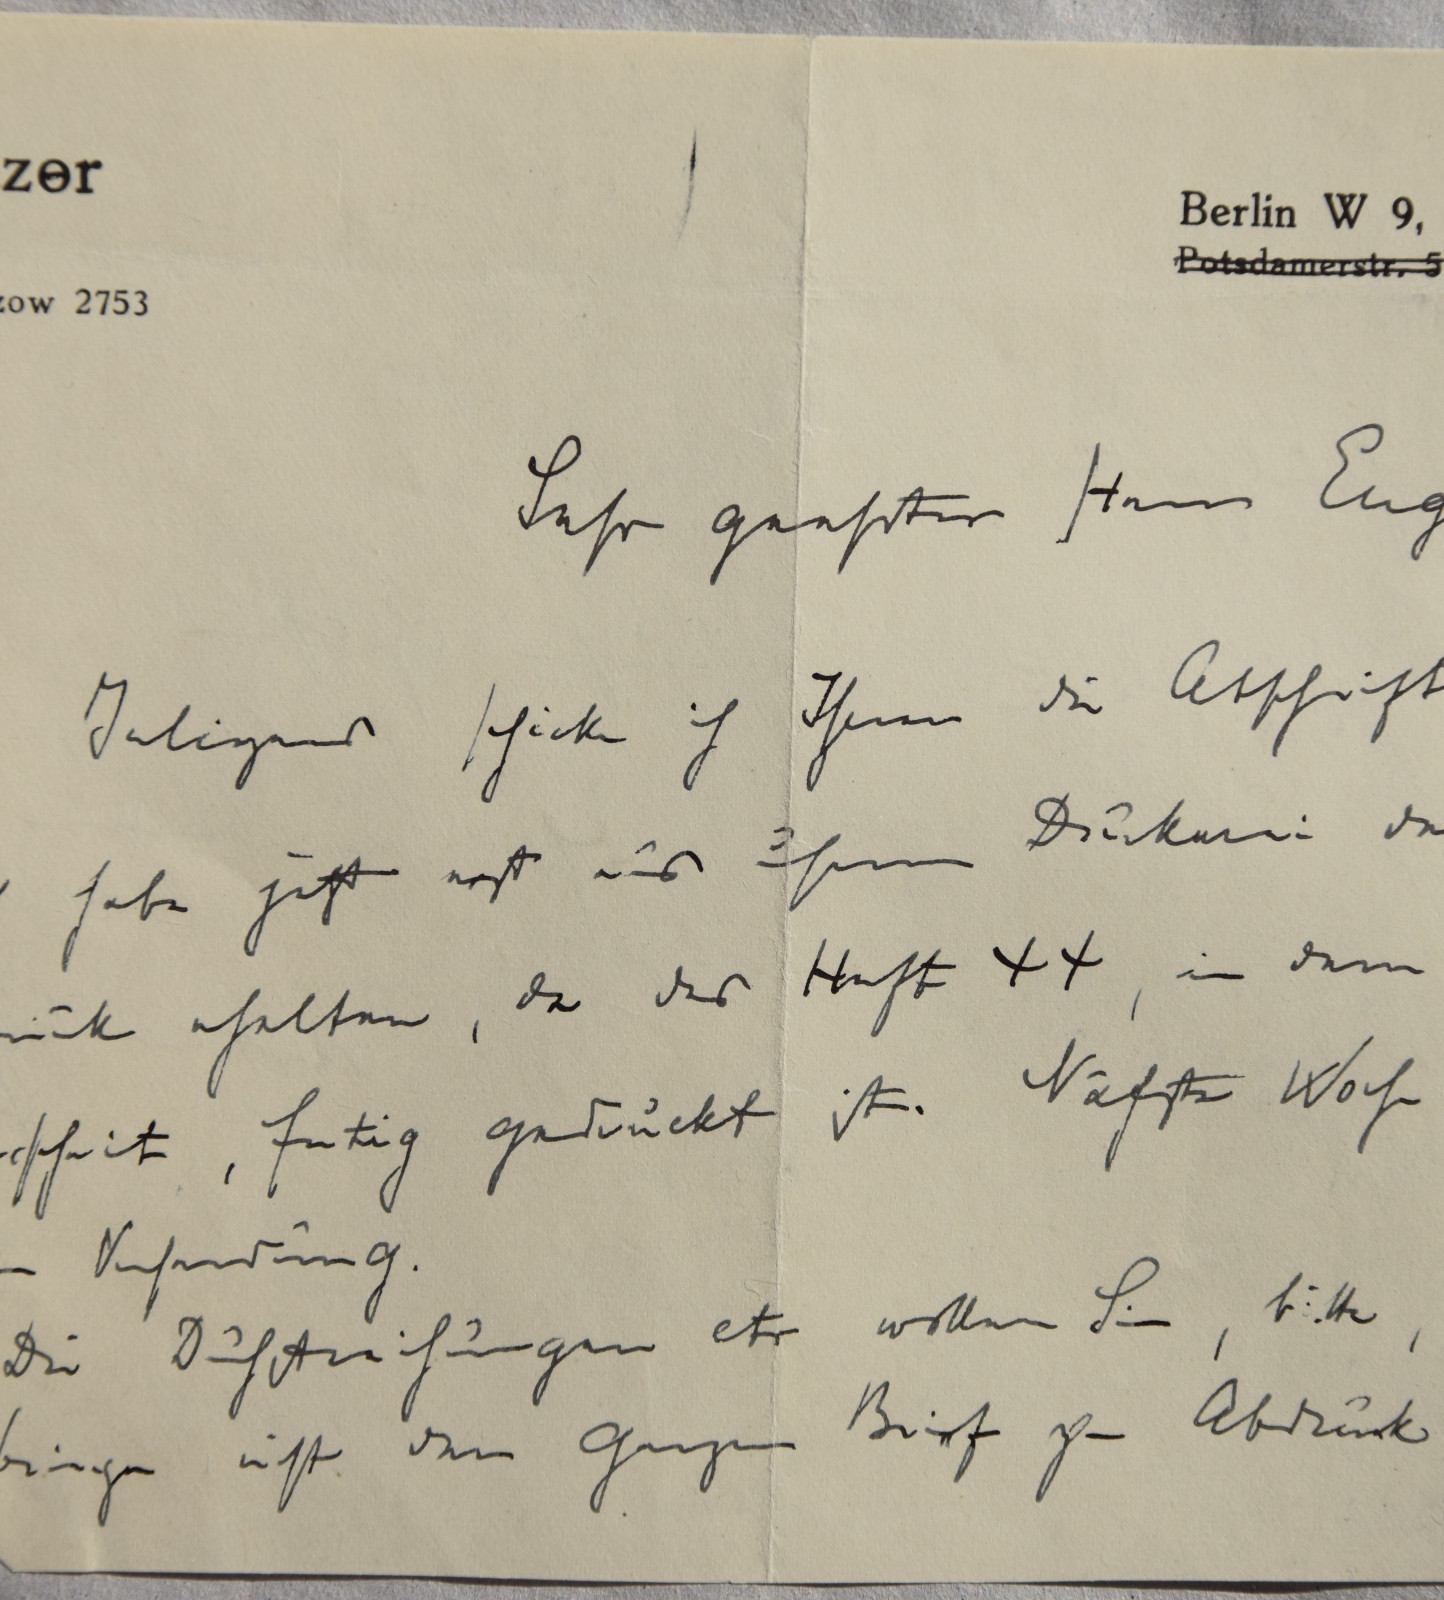 zer
Berlin W 9,
Potsdamerstr. 5
zow 2753
Sehr geehrter Herr Eug
Inliegend schicke ich Ihnen die Abschrift
habe jetzt erst aus Ihrer Druckerei da
erhalten, da das Heft 44, in dem
fertig gedruckt ist. Nächste Woche
Versendung.
Die Durchstreichungen etc wollen Sie, bitte,
bringe nicht den ganzen Brief zum Abdruck